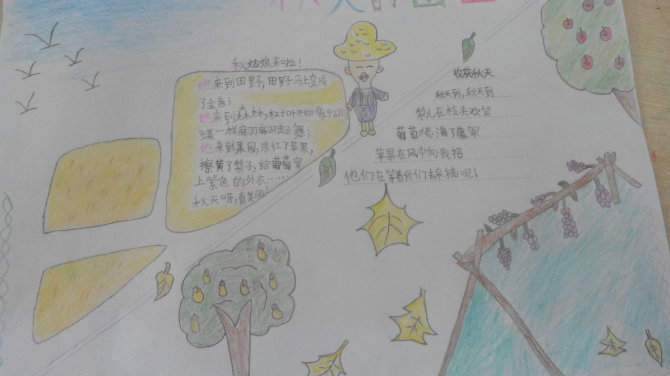 秋天的田
秋姑娘来啦!
她来到田野,田野马上变成
了金色;
她来到森林,树叶开始像
蝶一样翩翩起舞;
她来到果园,染红了苹果,
擦黄了梨子,给葡萄穿
上紫色的外衣……
秋天呀,真美丽
收获秋天
秋天到,秋天到
梨儿在枝头欢笑
葡萄爬满了藤架
苹果在风中向我招
他们在等着我们去采摘呢!